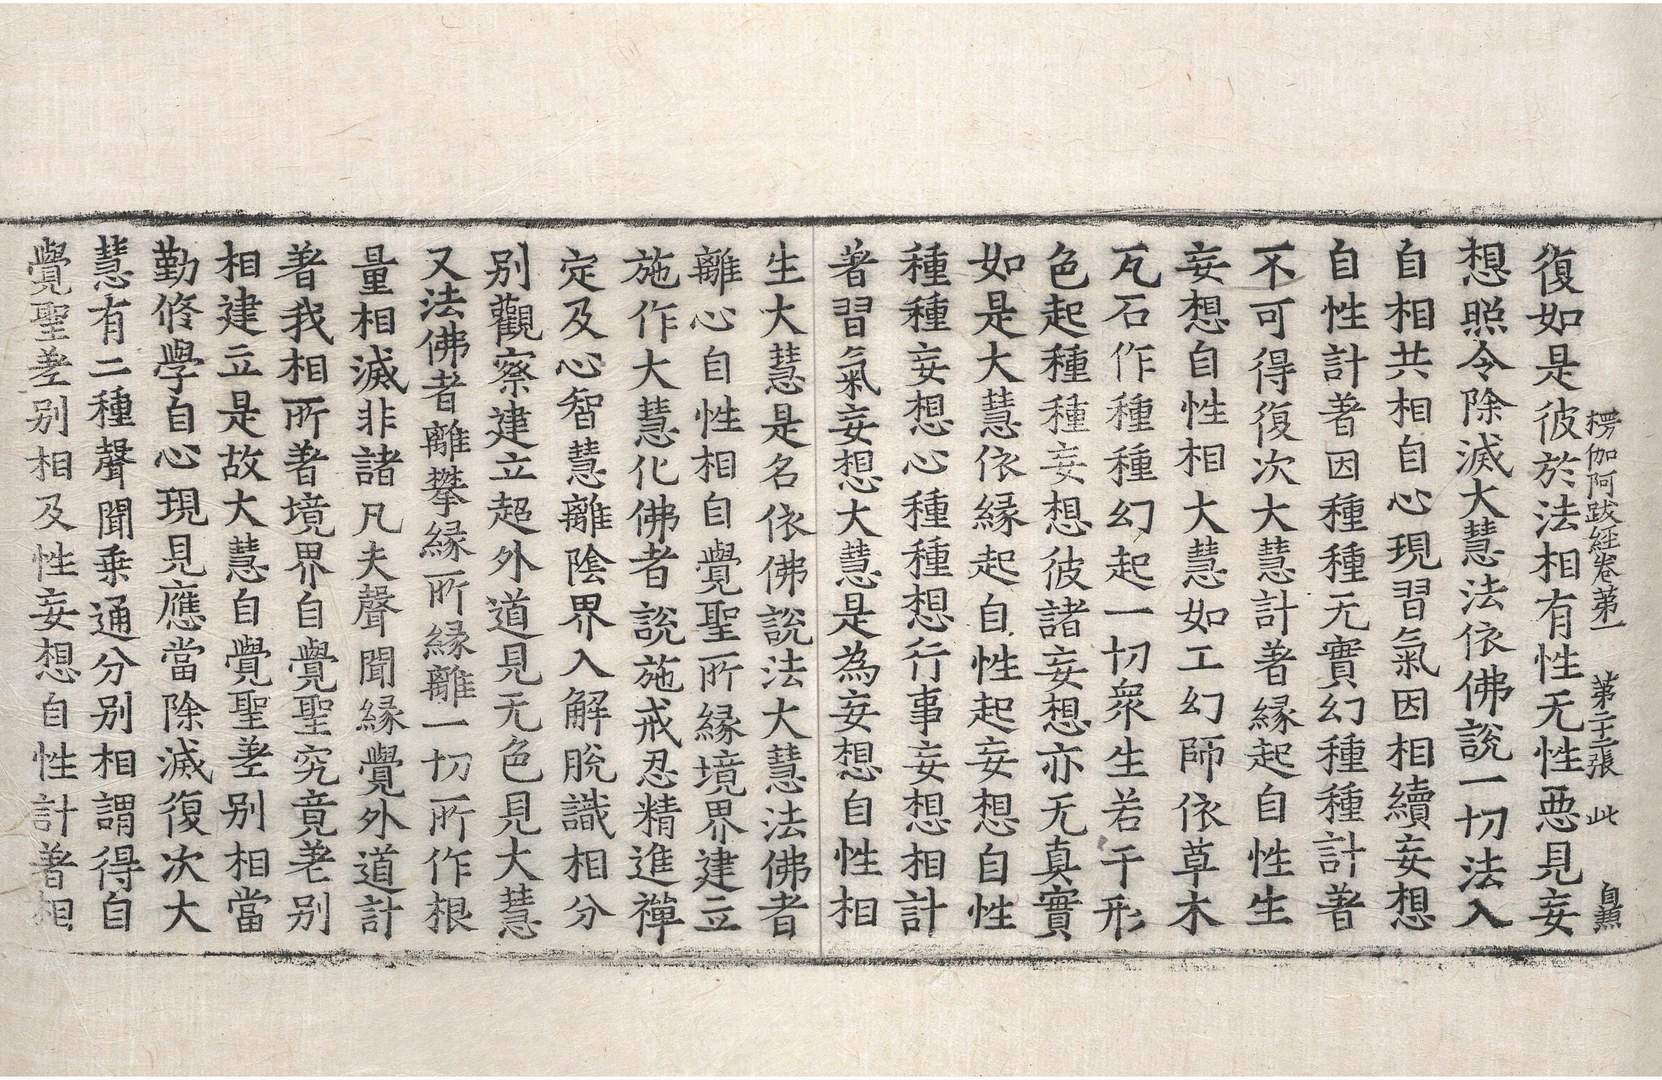 復如是彼於法相有性无性惡見妄
楞伽阿跋経卷第一 第 張 此
想照令除滅大慧法依佛說一切法入
自相共相自心現習氣因相續妄想
自性計著因種種无實幻種種計著
不可得復次大慧計著緣起自性生
妄想自性相大慧如工幻師依草木
瓦石作種種幻起一切衆生若干形
色起種種妄想彼諸妄想亦无真實
如是大慧依緣起自性起妄想自性
種種妄想心種種想行事妄想相計
著習氣妄想大慧是為妄想自性相
生大慧是名依佛說法大慧法佛者
離心自性相自覺聖所緣境界建立
施作大慧化佛者說施戒忍精進禪
定及心智慧離陰界入解脫識相分
別觀察建立超外道見无色見大慧
又法佛者離攀緣所緣離一切所作根
量相滅非諸凡夫聲聞緣覺外道計
著我相所著境界自覺聖究竟差別
相建立是故大慧自覺聖差別相當
勤修學自心現見應當除滅復次大
慧有二種聲聞乗通分別相謂得自
覺聖差別相及性妄想自性計著相